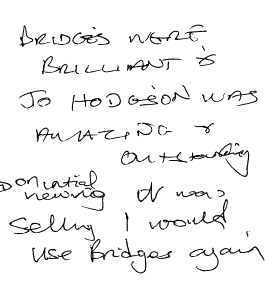 BRIDGES WERE
BRILLIANT &
JO HODGSON WAS
AMAZING &
outstanding
on initial
viewing
selling I would
use Bridges again